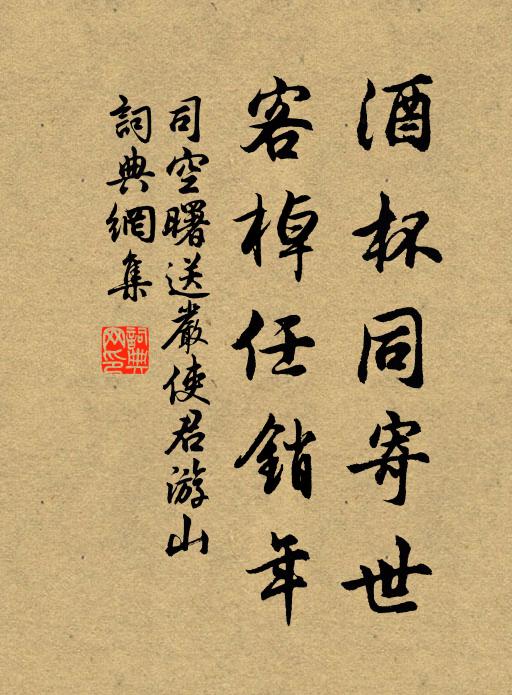 酒杯同寄世
客棹任銷年
司空曙送嚴使君游山
詞典網集
詞典網印